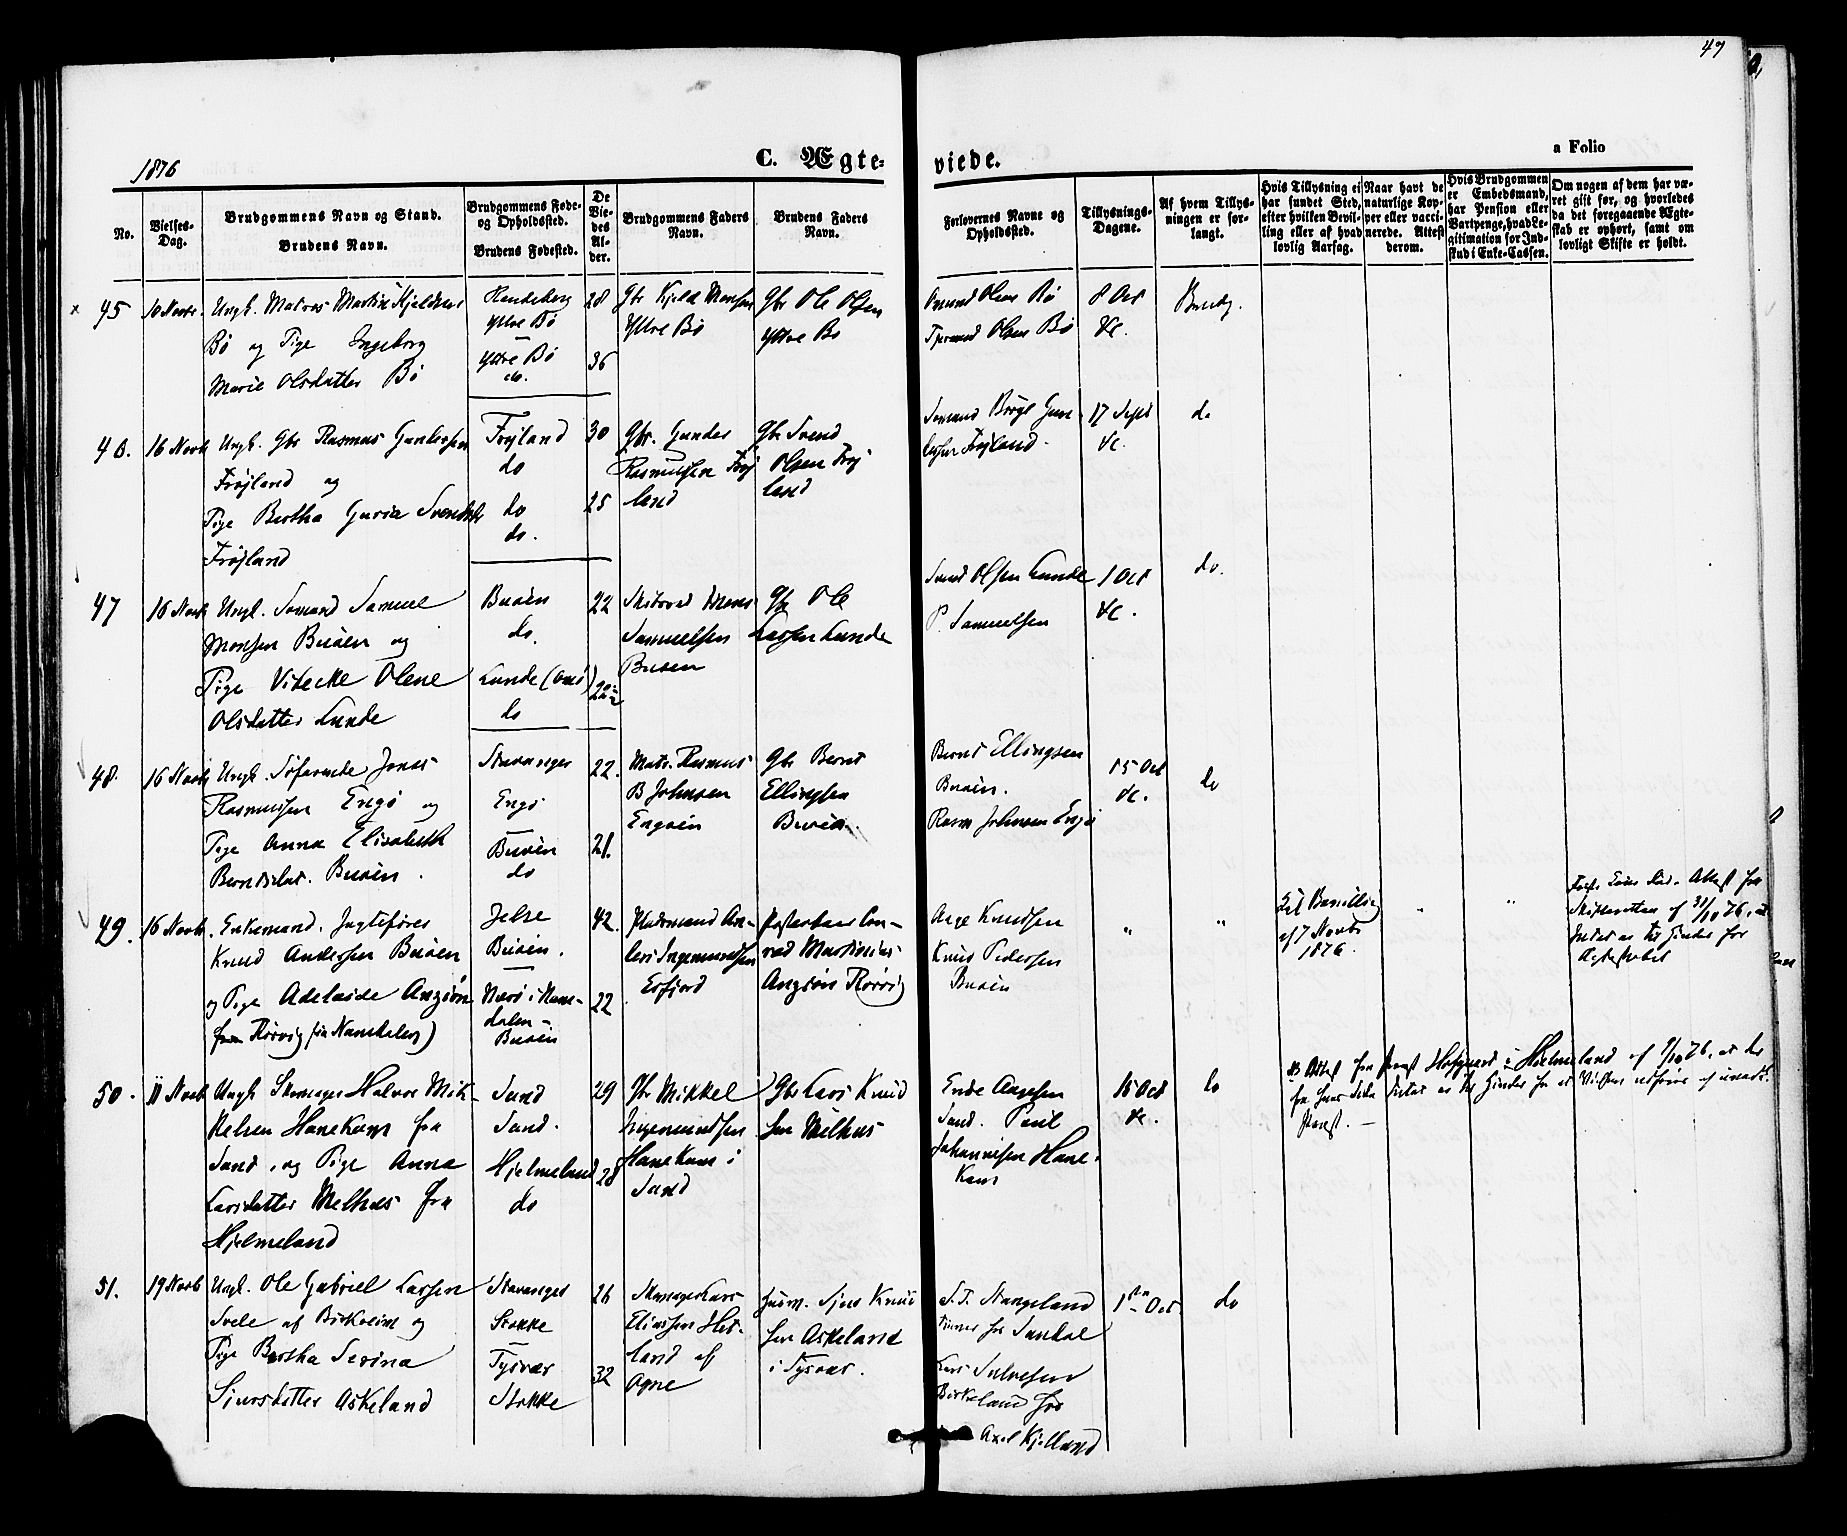 47
1876
C. Ægte-
viede.
a Folio
No.
Vielses-
Dag.
Brudgommens Navn og Stand.
Brudens Navn.
Brudgommens Føde-
og Opholdssted.
Brudens Fødested.
De
Vie-
des
Al-
der.
Brudgommens Faders
Navn.
Brudens Faders
Navn.
Forlovernes Navne og
Opholdssted.
Tillysnings-
Dagene.
Af hvem Tillys-
ningen er for-
langt.
Hvis Tillysning ei
har fundet Sted,
efter hvilken Bevil-
ling eller af hvad
lovlig Aarsag.
Naar havt de
naturlige Kop-
per eller vacci-
nerede. Attest
derom.
Hvis Brudgommen
er Embedsmand,
har Pension eller
Vartpenge, hvad Le-
gitimation for Ind-
skud i Enke-Cassen.
Om nogen af dem har væ-
ret gift før, og hvorledes
da det foregaaende Ægte-
skab er ophørt, samt om
lovligt Skifte er holdt.
45
10 Novbr.
Ungk. Matros Martin Kjeldsen
Bö og Pige Ingeborg
Marie Olsdatter Bö
Ytre Bö
Ytre Bö
do.
28
36
Gbr Kjeld Monsen
Ytre Bö
Gbr Ole Olsen
Ytre Bö
Olsen Bö
Olsen Bö
8 Oct
&c.
Brudg.
46.
16 Novb
Ungk. Gbr Rasmus Gundersen
Fröjland og
Pige Bertha Guria Svendsdtr
Fröjland
Fröjland
do
do
do.
30
25
Gbr. Gunder
Rasmussen Fröj
land
Gbr Svend
Olsen Fröj
land
Sömand Börge Gun
dersen Fröjland
17 Sept
&c.
do
47
16 Novb
Ungk. Sömand Samuel
Monsen Buöen og
Pige Vibecke Olene
Olsdatter Lunde
Buöen
do.
Lunde (Omö)
do
22
22
Mons
Samuelsen
Buöen
Gbr Ole
Larsen Lunde
Svend Olsen Lunde
P. Samuelsen
1 Oct
&c.
do.
48.
16 Novb
Ungk. Söfarende Jonas
Rasmussen Engö og
Pige Anna Elisabeth
Berntsdat. Buöen.
Stavanger
Engö
Buöen
do
22.
21.
Matr. Rasmus
B Johnsen
Engöen
Gbr Bernt
Ellingsen
Buöen
Bernt Ellingsen
Buöen.
Rasm Johnsen Engö
15 Oct
&c.
do
49.
16 Novb
Enkemand. Jagtförer
Knud Andersen Buöen
og Pige Adelaide Angjön
Rörvig (fra Namdalen)
Jelse
Buöen.
Nærö i Nam-
dalen-
Buöen
42.
22
Pladsmand An-
ders Ingemundsen
Erfjord
Con-
rad Martinius
Angjön Rörvig
Aage Knudsen
Knud Pedersen
Buöen
"
"
Bevilling
af 7 Novbr
1876.
"
"
Attest fra
Skifteretten af 31/10 76, at
Intet er til Hinder for
Ægteskabet
50.
11 Novb
Ungk Skomager Halvor Mik-
kelsen Hanekam fra
Sand, og Pige Anna
Larsdatter Melhus fra
Hjelmeland
Sand
Sand.
Hjelmeland
do
29
28
Gbr Mikkel
Ingemundsen
Hanekam i
Sand
Gbr Lars Knud
sen Melhus
Endre Aagesen
Sand. Poul
Johannesen Hane-
kam
15 Oct
&c.
do
Attest fra Præst Hofgaard i Hjelmeland af 9/10 76, at der
fra hans Side Intet er til Hinder for at Vielsen udföres af
Præst.
51.
19 Novb
Ungk. Ole Gabriel Larsen
Svele af Birkeim og
Pige Bertha Serina
Sjursdatter Askeland
Stavanger
Stokke
Tysvær
Stokke
26
32
Skomager Lars
Eliassen Het-
land af
Ogne
Husm. Sjur Knud
sen Askeland
i Tysvær.
S. T. Stangeland
Lars Salvesen
Birkeland hos
Axel Kjelland
1ste Oct
do